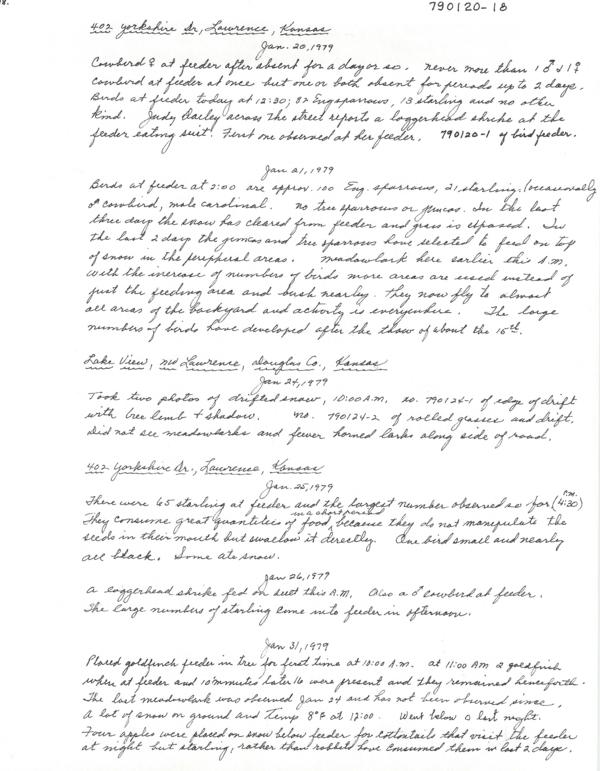 790120-18
8.
402 Yorkshire Dr, Lawrence, Kansas
Jan. 20, 1979
Cowbird ♀ at feeder after absent for a day or so. never more than 1 ♂ & 1 ♀
cowbird at feeder at once but one or both absent for periods up to 2 days.
Birds at feeder today at 12:30; 52 Eng sparrows, 13 starling and no other
kind. Judy Bailey across the street reports a loggerhead shrike at the
feeder eating suit. First one observed at her feeder. 790120-1 of bird feeder.
Jan 21, 1979
Birds at feeder at 2:00 are approx. 100 Eng. sparrows, 21 starling, (occasionally
♂ cowbird, male cardinal. no tree sparrows or juncos. In the last
three days the snow has cleared from feeder and grass is exposed. In
the last 2 days the juncos and tree sparrows have selected to feed on top
of snow in the peripheral areas. meadowlark here earlier this A.M.
with the increase of numbers of birds more areas are used instead of
just the feeding area and bush nearby. They now fly to almost
all areas of the backyard and activity is everywhere. The large
numbers of birds have developed after the thaw of about the 15th.
Lake View, NW Lawrence, Douglas Co., Kansas
Jan 24, 1979
Took two photos of drifted snow, 10:00 A.M. no. 790124-1 of edge of drift
with tree limb + shadow. no. 790124-2 of rolled grasses and drift.
Did not see meadowlarks and fewer horned larks along side of road.
402 Yorkshire Dr., Lawrence, Kansas
Jan. 25, 1979
There were 65 starling at feeder and the largest number observed so far (4:30 P.M.)
They consume great quantities of food, in a short period because they do not manipulate the
seeds in their mouth but swallow it directly. One bird small and nearly
all black. Some ate snow.
Jan 26, 1979
A loggerhead shrike fed on suet this A.M. Also a ♂ cowbird at feeder.
The large numbers of starling come into feeder in afternoon.
Jan 31, 1979
Placed goldfinch feeder in tree for first time at 10:00 A.M. at 11:00 AM 2 goldfinch
where at feeder and 10 minutes later 16 were present and they remained henceforth.
The last meadowlark was observed Jan 24 and has not been observed since.
A lot of snow on ground and Temp 8°F at 12:00. Went below 0 last night.
Four apples were placed on snow below feeder for cottontails that visit the feeder
at night but starling, rather than rabbits have consumed them in last 2 days.